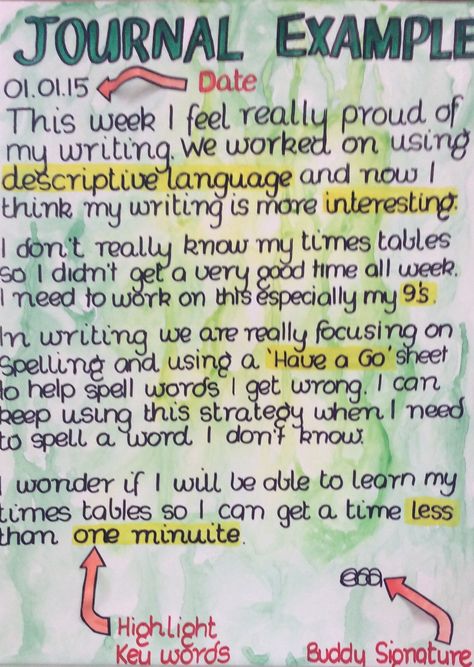 JOURNAL EXAMPLE
01.01.15 Date
This week I feel really proud of
my writing. We worked on using
descriptive language and now I
think my writing is more interesting.
I don't really know my times tables
so I didn't get a very good time all week.
I need to work on this especially my 9's.
In writing we are really focusing on
spelling and using a 'Have a Go' sheet
to help spell words I get wrong. I can
keep using this strategy when I need
to spell a word I don't know.
I wonder if I will be able to learn my
times tables so I can get a time less
than one minuite.
Highlight
Key words
Buddy Signature